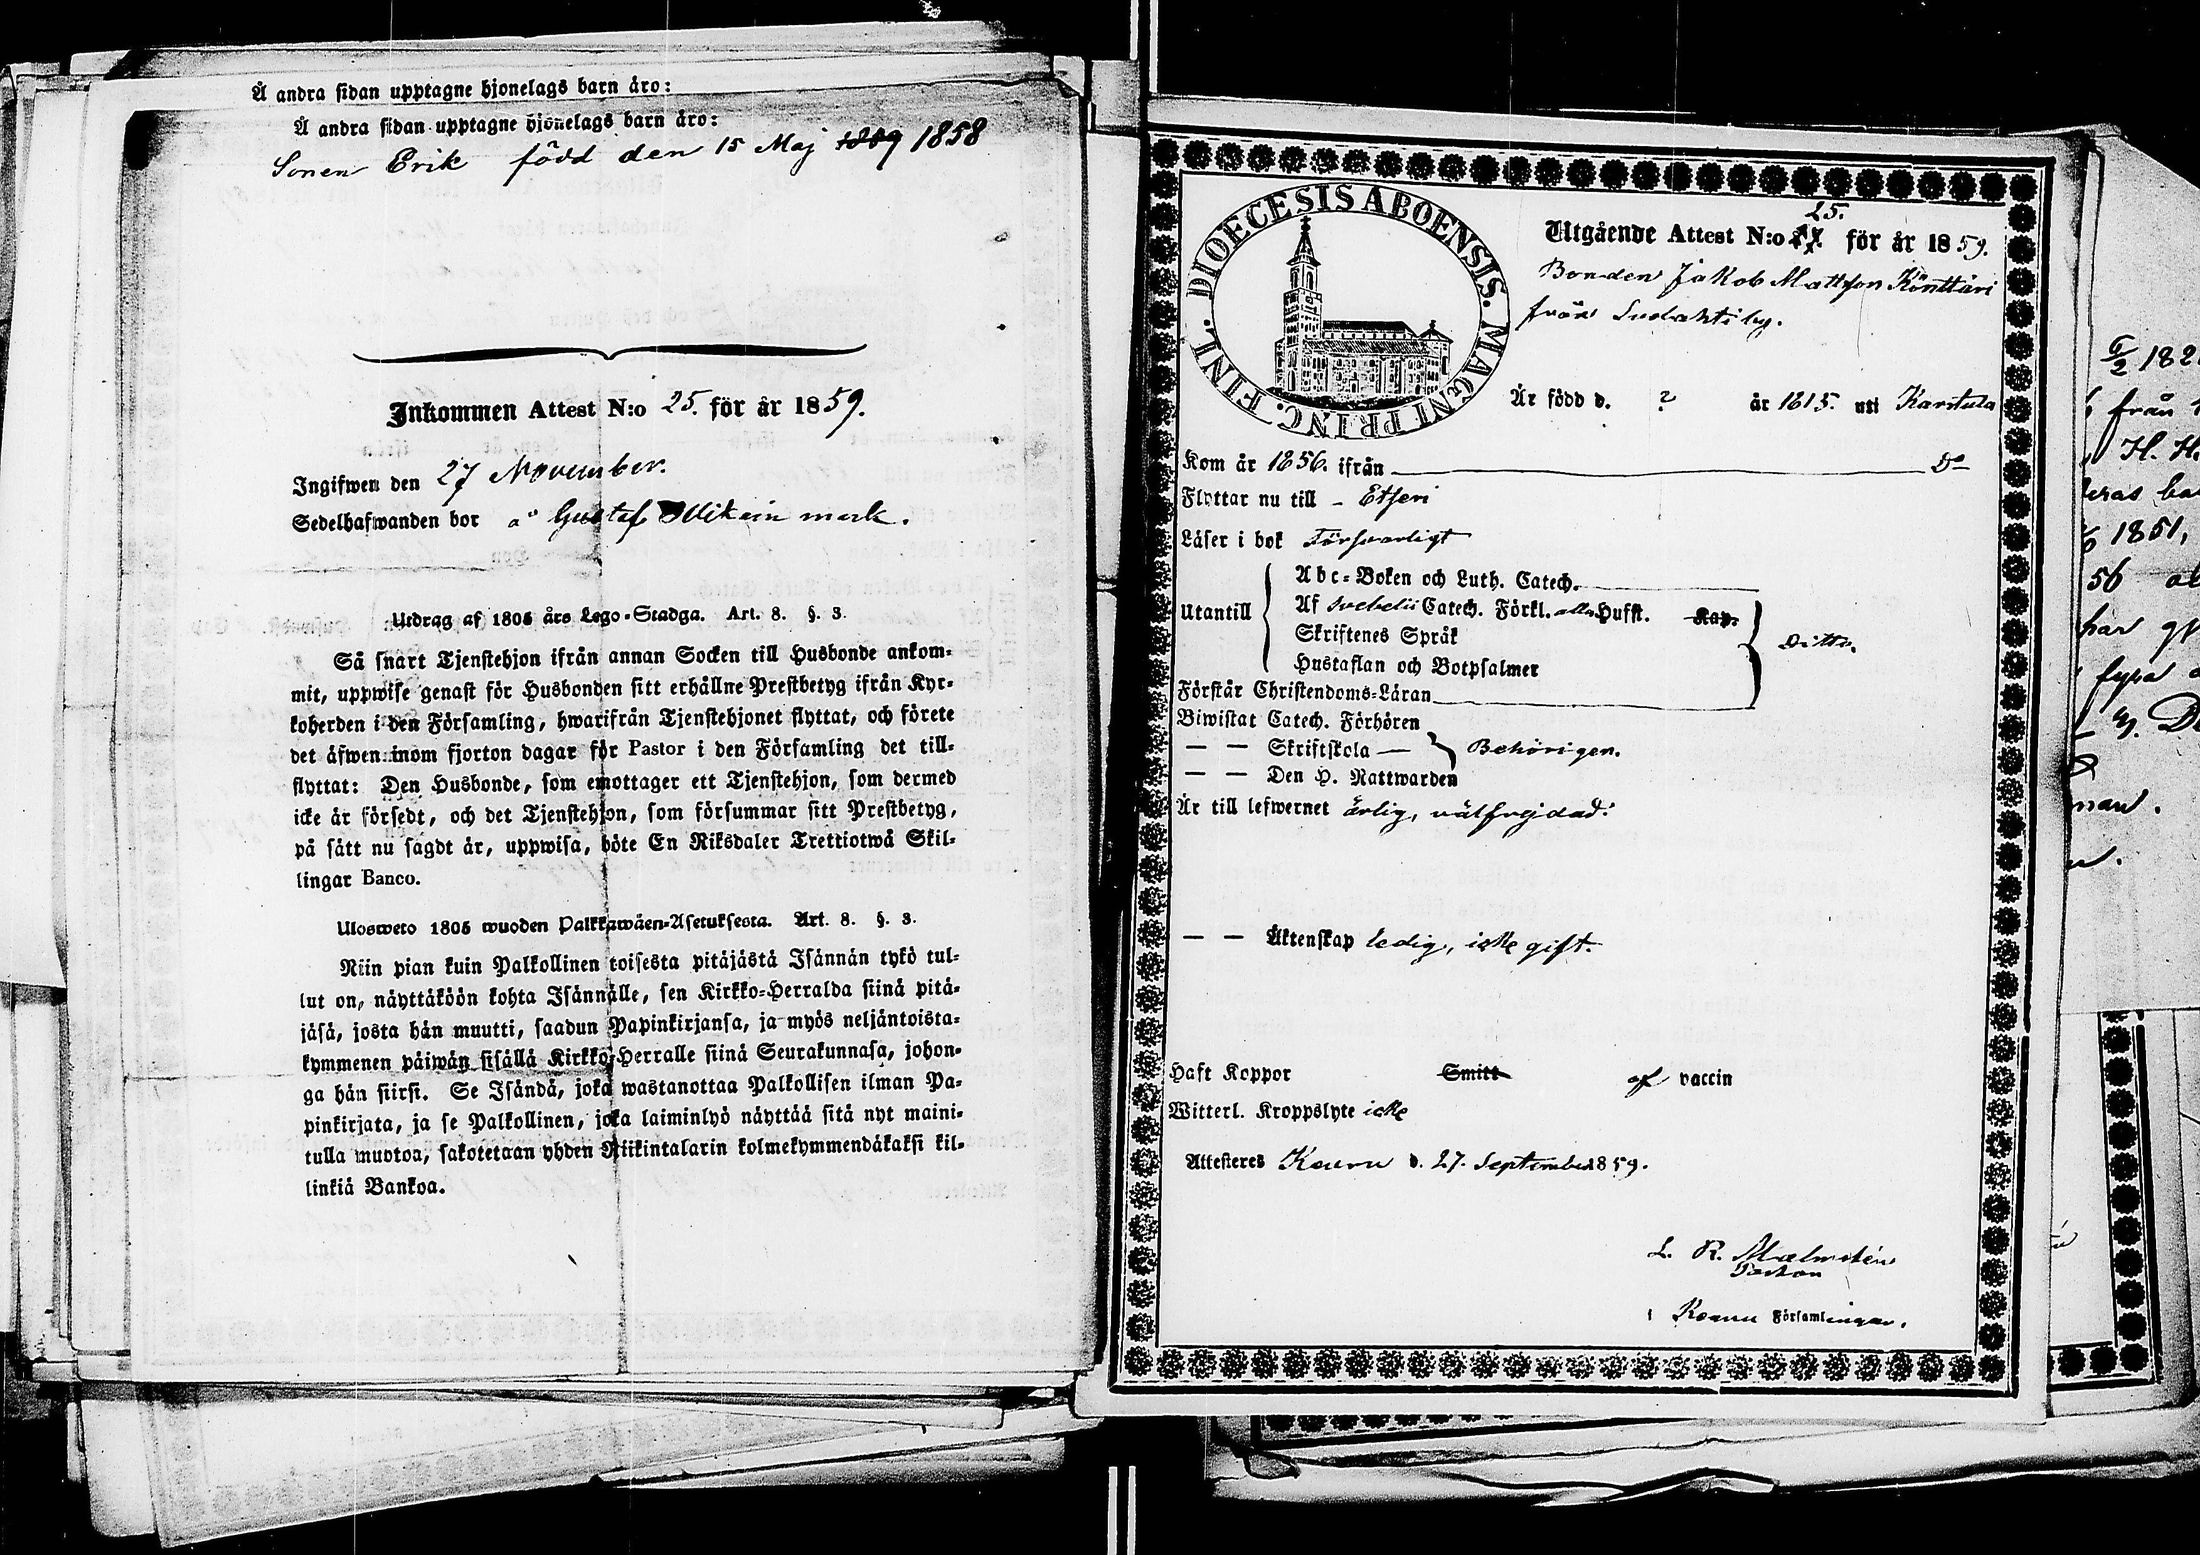 Å andra sidan upptagne hjonelags barn äro:
Å andra sidan upptagne hjonelags barn äro:
Sonen Erik född den 15 Maj 1809 1858
Inkommen Attest N:o 25. för år 1859.
Ingifwen den 27 November.
Sedelhafwanden bor å Gustaf Mikain mark.
Utdrag af 1805 års Lego-Stadga. Art. 8. §. 3.
Så snart Tjenstehjon ifrån annan Socken till Husbonde ankom-
mit, uppwise genast för Husbonden sitt erhållne Prestbetyg ifrån Kyr-
koherden i den Församling, hwarifrån Tjenstehjonet flyttat, och förete
det äfwen inom fjorton dagar för Pastor i den Församling det till-
flyttat: Den Husbonde, som emottager ett Tjenstehjon, som dermed
icke är försedt, och det Tjenstehjon, som försummar sitt Prestbetyg,
på sätt nu sagdt är, uppwisa, böte En Riksdaler Trettiotwå Skil-
lingar Banco.
Ulosweto 1805 wuoden Palkkawäen-Asetuksesta. Art. 8. §. 3.
Niin pian kuin Palkollinen toisesta pitäjästä Isännän tykö tul-
lut on, näyttäköön kohta Isännälle, sen Kirkko-Herralda siinä pitä-
jäsä, josta hän muutti, saadun Papinkirjansa, ja myös neljäntoista-
kymmenen päiwän sisällä Kirkko-Herralle siinä Seurakunnasa, johon-
ga hän siirsi. Se Isändä, joka wastanottaa Palkollisen ilman Pa-
pinkirjata, ja se Palkollinen, joka laiminlyö näyttää sitä nyt maini-
tulla muotoa, sakotetaan yhden Riikintalarin kolmekymmendäkaksi kil-
linkiä Bankoa.
DIOECESIS ABOENSIS. MAGNI PRINC. FINL.
25.
Utgående Attest N:o för år 1859.
Bonden Jakob Mattsson Könttäri
från Suolahti by.
Är född d. ? år 1815. uti Karstula
Kom år 1856. ifrån D:o
Flyttar nu till - Etseri
Läser i bok Försvarligt
Utantill
Abc-Boken och Luth. Catech.
Af Svebelii Catech. Förkl. alla Hufst. Kap.
Skriftenes Språk
Hustaflan och Botpsalmer
Ditto.
Förstår Christendoms-Läran
Biwistat Catech. Förhören
— — Skriftskola — Behörigen.
— — Den H. Nattwarden
Är till lefwernet ärlig, välfrejdad.
— — Äktenskap ledig, icke gift.
Haft Koppor Smitt af vaccin
Witterl. Kroppslyte icke
Attesteres Keuru d. 27. September 1859.
L. R. Malmstén
Pastor
i Keuru Församlingar.
1851,
56
har
fyra